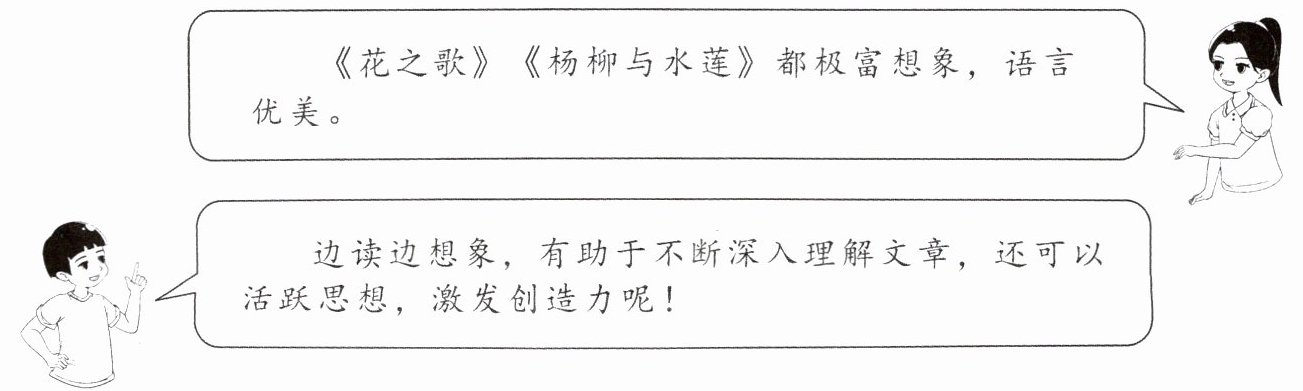 《花之歌》《杨柳与水莲》都极富想象，语言
优美。
边读边想象，有助于不断深入理解文章，还可以
活跃思想，激发创造力呢！